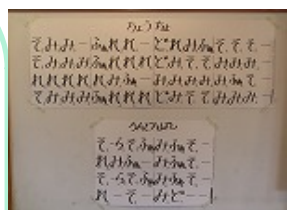 ちょうちょ
そみみー|ふぁれれー|どれみふぁ|そそそー
そみみみ|ふぁれれれ|どみそそ|みみみー
れれれれ|れみふぁー|みみみみ|みふぁそー
そみみみ|ふぁれれれ|どみそそ|みみみー
そらそふぁみふぁそー
れみふぁーみふぁそー
そらそふぁみふぁそー
れーそーみどーー